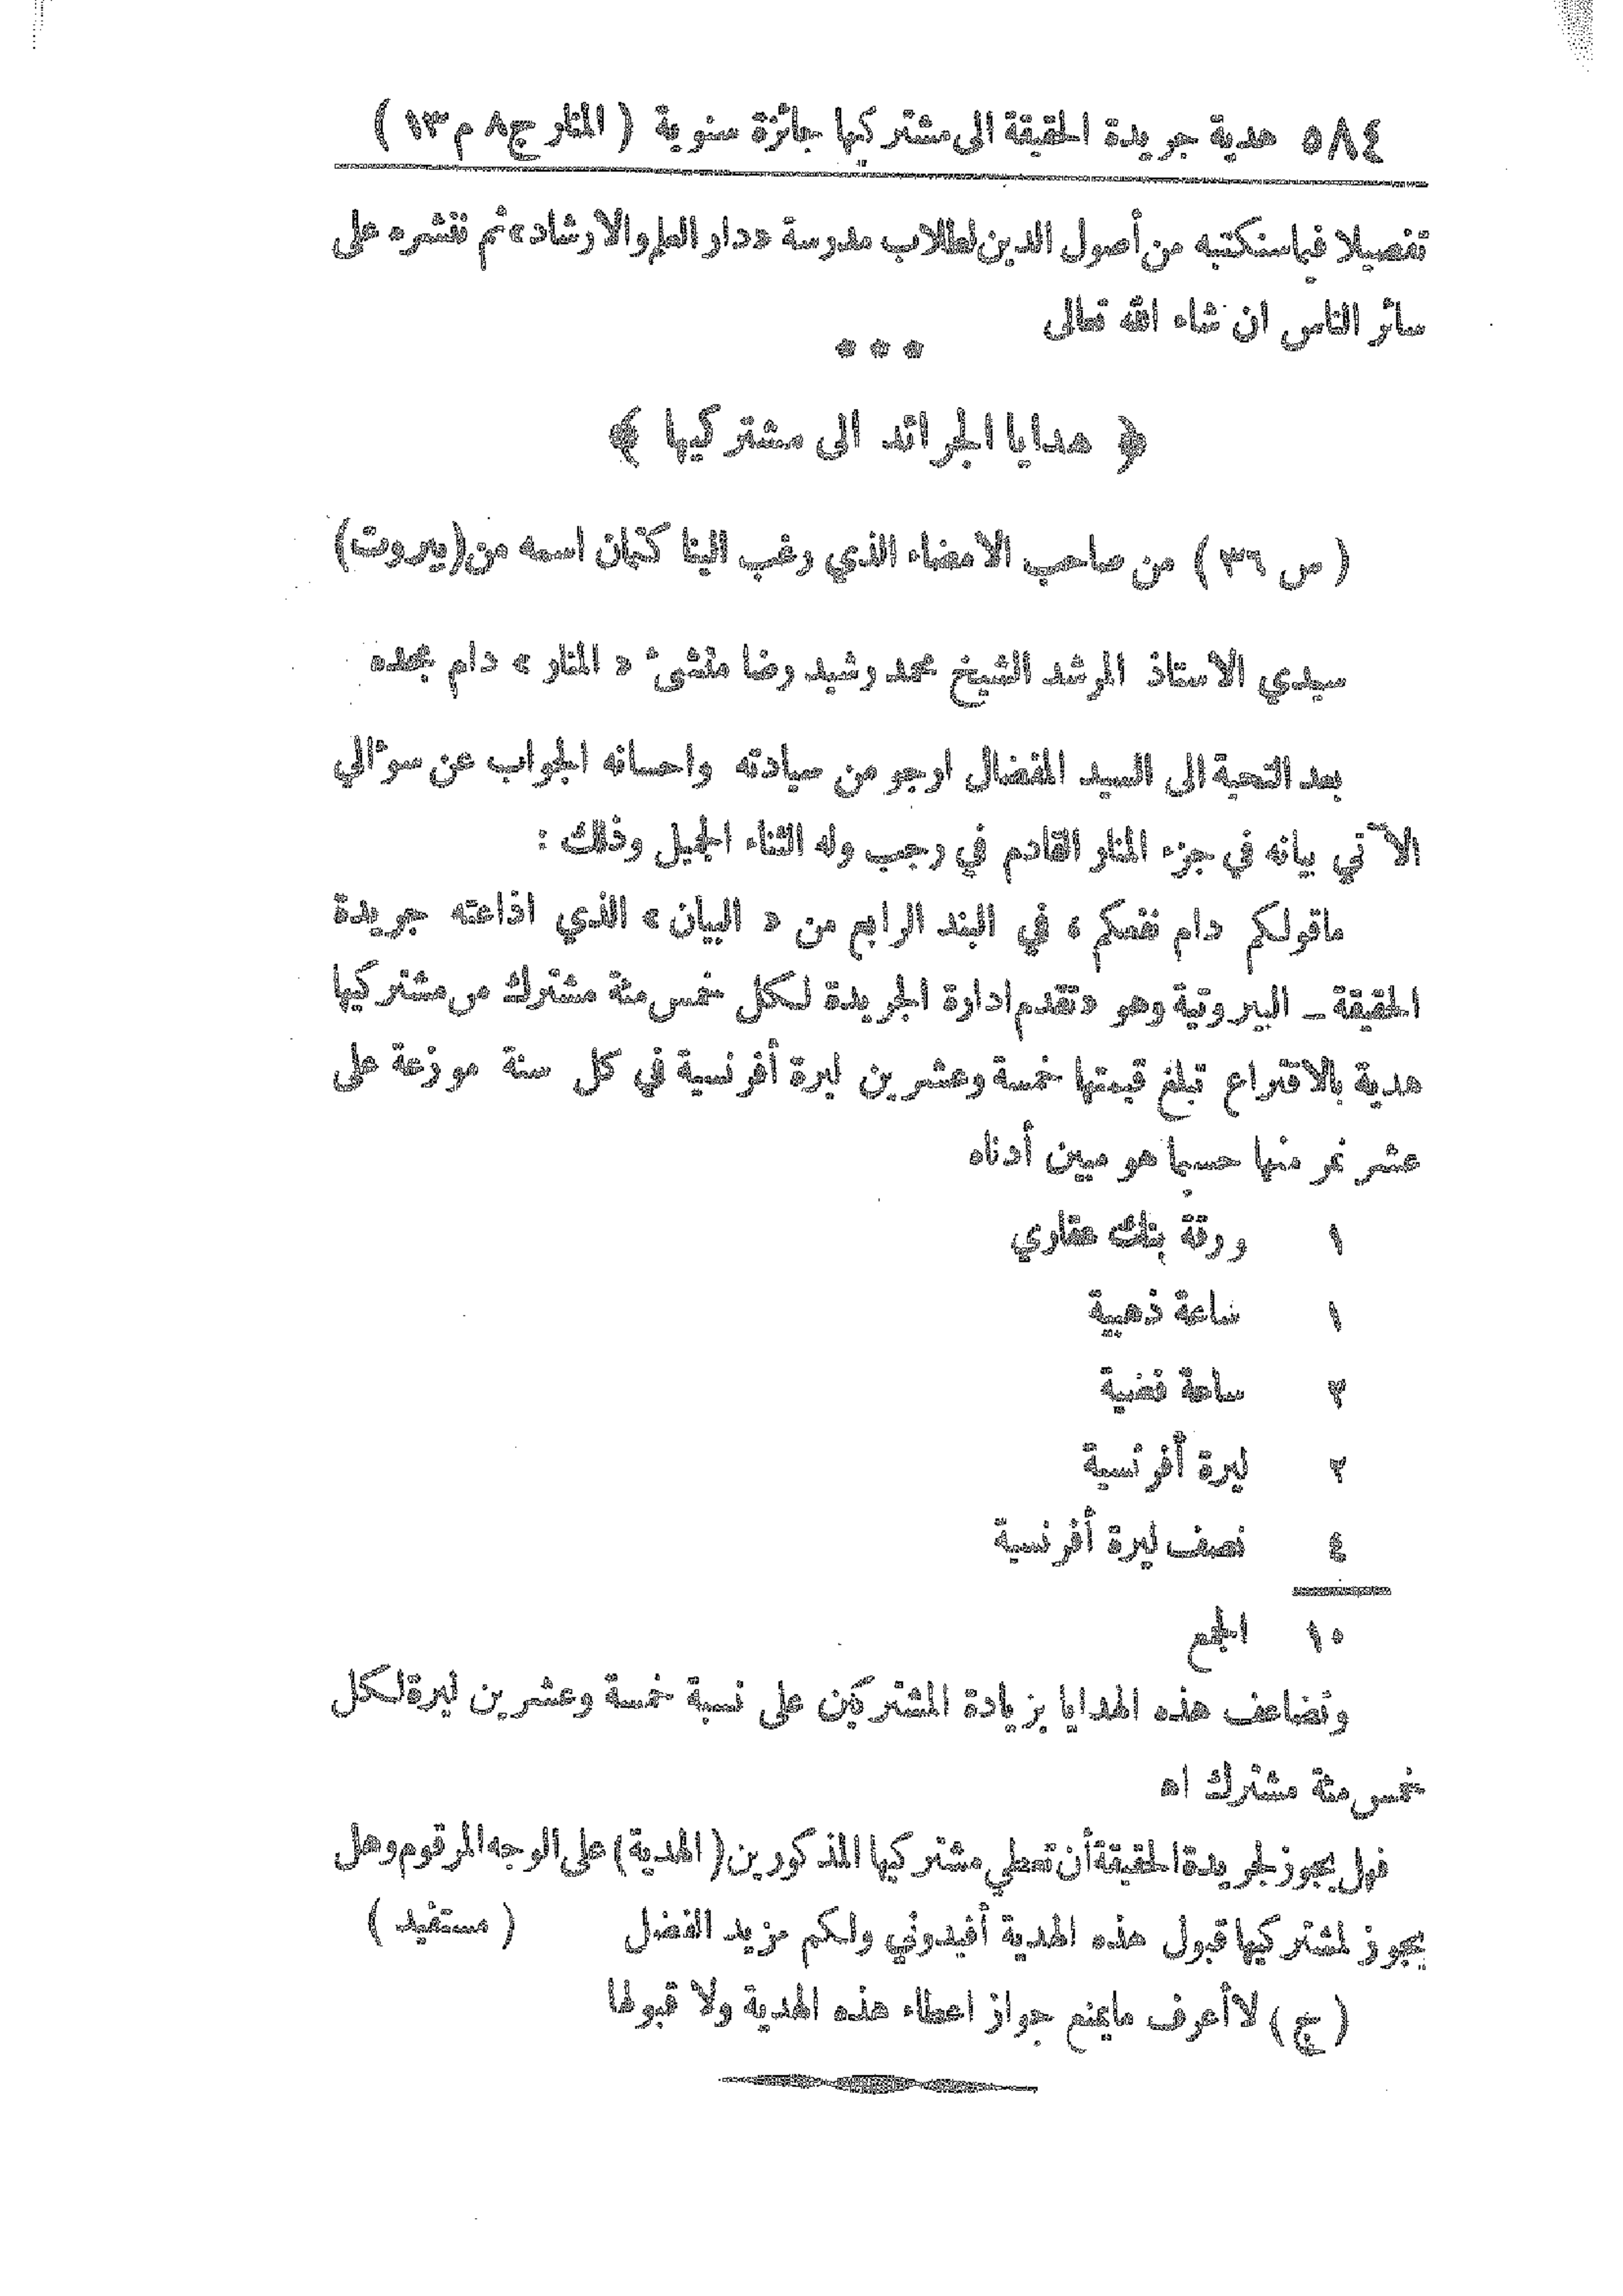 ٥٨٤ هدية جريدة الحقيقة الى مشتركيها جائزة سنوية ( المنار ج٨ م١٣ )
تفصيلا فيما سنكتبه من أصول الدين لطلاب مدرسة «دار العلم والارشاد» ثم ننشره على
سائر الناس ان شاء الله تعالى
***
﴿ هدايا الجرائد الى مشتركيها ﴾
( س ٣٦ ) من صاحب الامضاء الذي رغب الينا كتمان اسمه من (بيروت)
سيدي الاستاذ المرشد الشيخ محمد رشيد رضا منشئ « المنار » دام مجده
بعد التحية الى السيد المفضال ارجو من سيادته واحسانه الجواب عن سؤالي
الآتي بيانه في جزء المنار القادم في رجب وله الثناء الجميل وذلك :
ماقولكم دام نفعكم ، في البند الرابع من « البيان » الذي اذاعته جريدة
الحقيقة ــ البيروتية وهو «تقدم ادارة الجريدة لكل خمس مئة مشترك من مشتركيها
هدية بالاقتراع تبلغ قيمتها خمسة وعشرين ليرة أفرنسية في كل سنة موزعة على
عشر نمر منها حسبما هو مبين أدناه
١ ورقة بنك عقاري
١ ساعة ذهبية
٢ ساعة فضية
٢ ليرة أفرنسية
٤ نصف ليرة أفرنسية
١٠ الجمع
وتضاعف هذه الهدايا بزيادة المشتركين على نسبة خمسة وعشرين ليرة لكل
خمس مئة مشترك اه
فهل يجوز لجريدة الحقيقة أن تعطي مشتركيها المذكورين (الهدية) على الوجه المرقوم وهل
يجوز لمشتركيها قبول هذه الهدية أفيدوني ولكم مزيد الفضل ( مستفيد )
( ج ) لا أعرف مايمنع جواز اعطاء هذه الهدية ولا قبولها